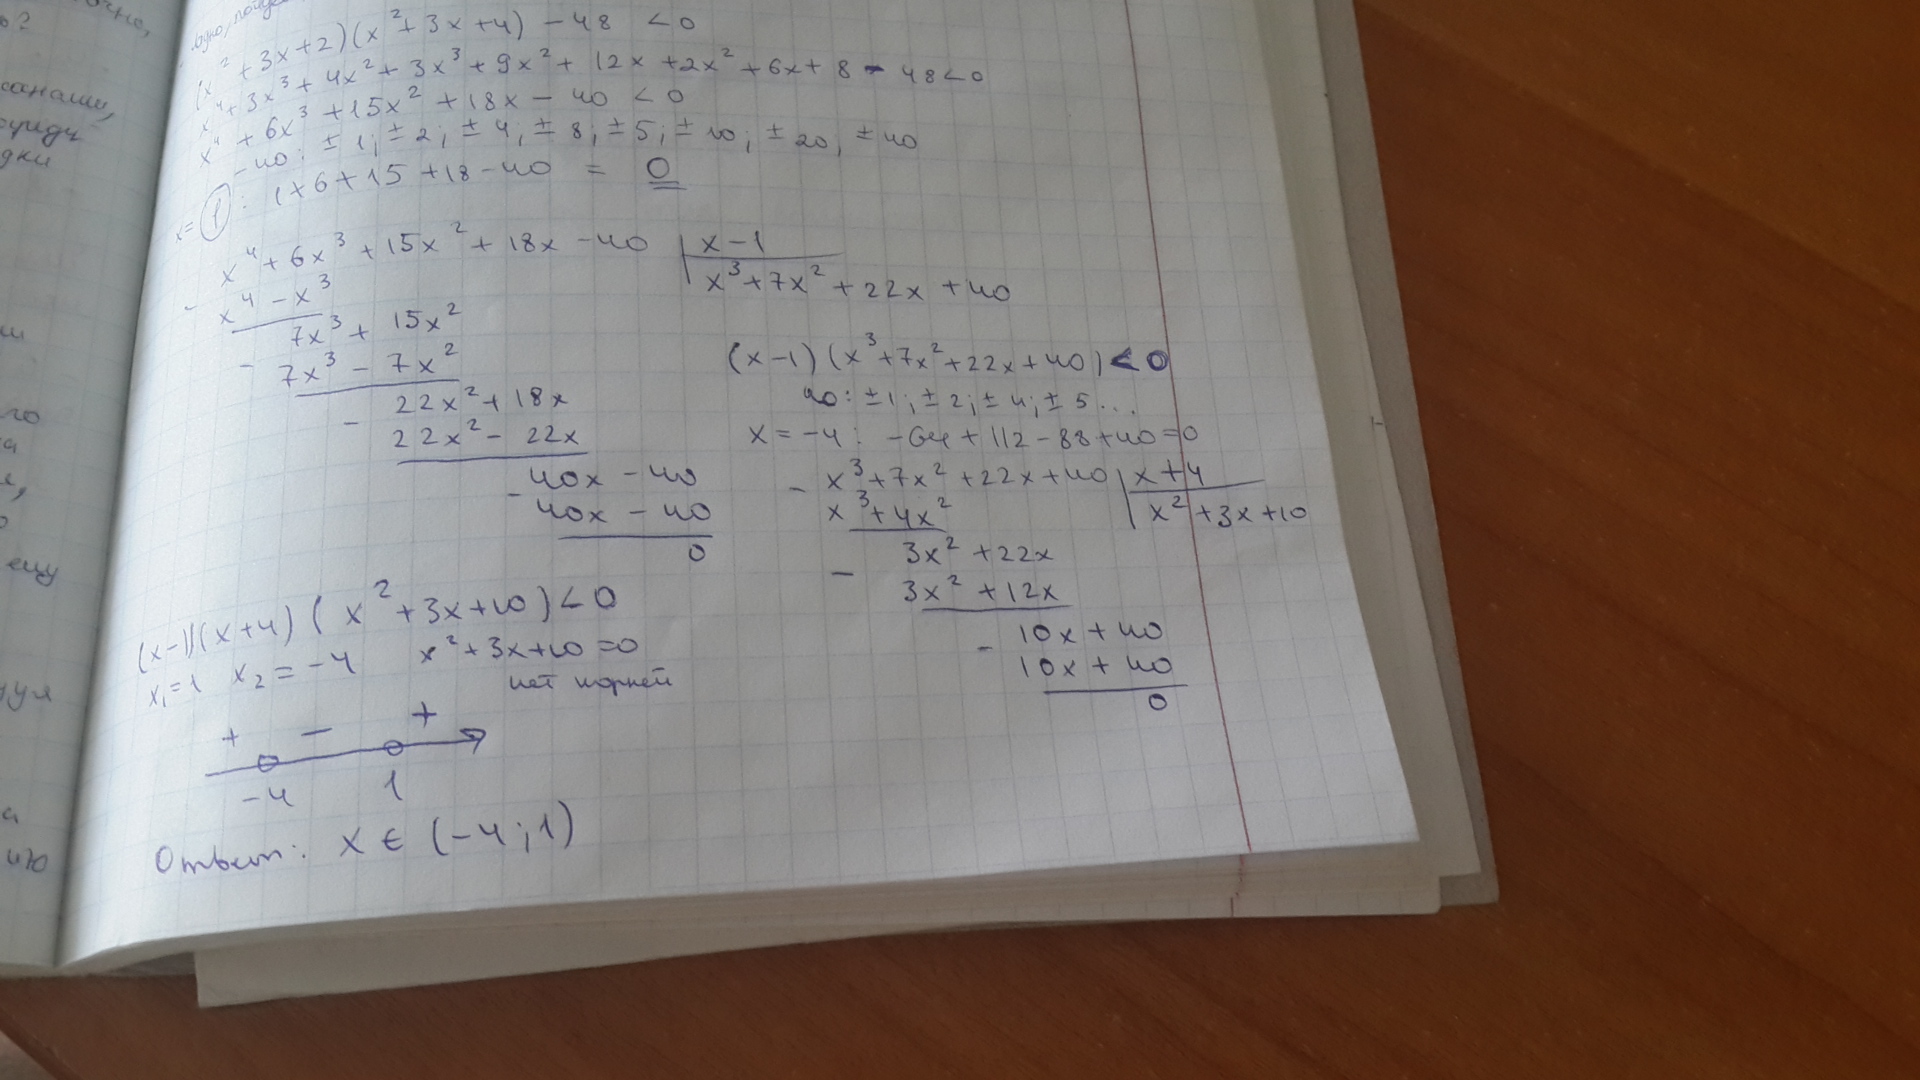 (x² + 3x + 2)(x² + 3x + 4) - 48 < 0
x⁴ + 3x³ + 4x² + 3x³ + 9x² + 12x + 2x² + 6x + 8 - 48 < 0
x⁴ + 6x³ + 15x² + 18x - 40 < 0
-40: ± 1; ± 2; ± 4; ± 8; ± 5; ± 10; ± 20; ± 40
x = 1: 1 + 6 + 15 + 18 - 40 = 0
x⁴ + 6x³ + 15x² + 18x - 40 | x - 1
- x⁴ - x³
x³ + 7x² + 22x + 40
7x³ + 15x²
- 7x³ - 7x²
22x² + 18x
- 22x² - 22x
40x - 40
- 40x - 40
0
(x - 1)(x³ + 7x² + 22x + 40) < 0
40: ± 1; ± 2; ± 4; ± 5 ...
x = -4: -64 + 112 - 88 + 40 = 0
x³ + 7x² + 22x + 40 | x + 4
- x³ + 4x²
x² + 3x + 10
3x² + 22x
- 3x² + 12x
10x + 40
- 10x + 40
0
(x - 1)(x + 4)(x² + 3x + 10) < 0
x₁ = 1 x₂ = -4 x² + 3x + 10 = 0
нет корней
+ - +
-4 1
Ответ: x ∈ (-4; 1)